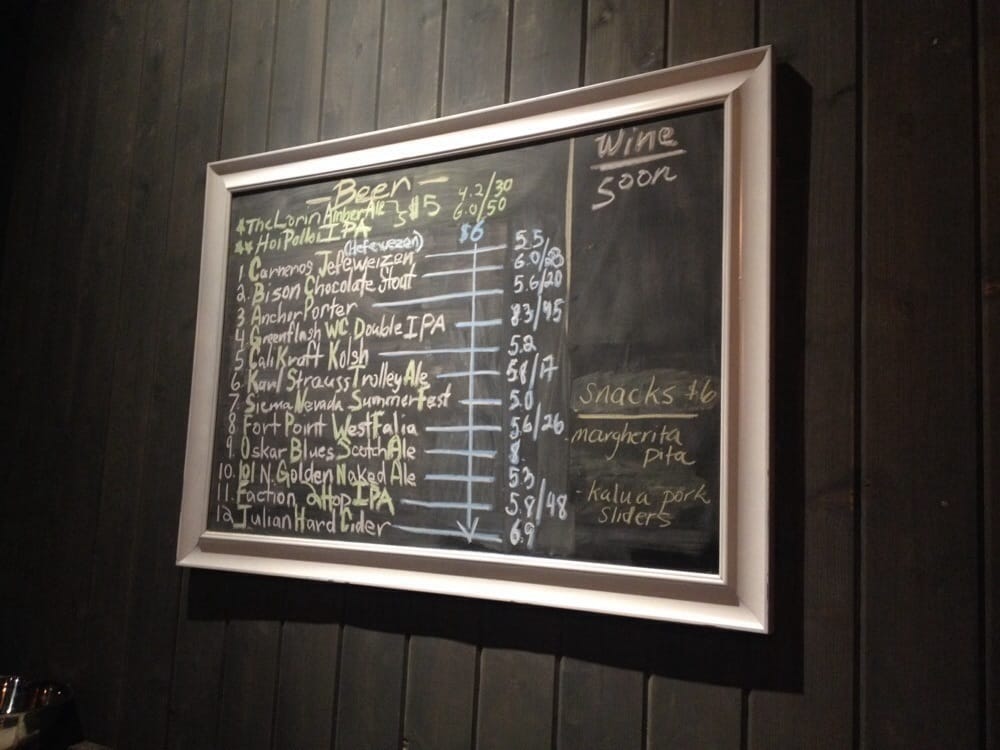 Beer
*The Lorin Amber Ale $5 4.2/30
** Hoi Polloi IPA 6.0/50
$6
(Hefeweizen)
1. Carneros Jefeweizen 5.5
2. Bison Chocolate Stout 6.0/28
3 Anchor Porter 5.6/20
4 Greenflash WC Double IPA 8.3/95
5 Cali Kraft Kolsh 5.2
6 Karl Strauss Trolley Ale 5.8/17
7 Sierra Nevada Summerfest 5.0
8 Fort Point Westfalia 5.6/26
9. Oskar Blues Scotch Ale 8.
10. 101 N. Golden Naked Ale 5.3
11. Faction 2 Hop IPA 5.8/48
12 Julian Hard Cider 6.9
Wine
Soon
Snacks $6
margherita
pita
- kalua pork
sliders